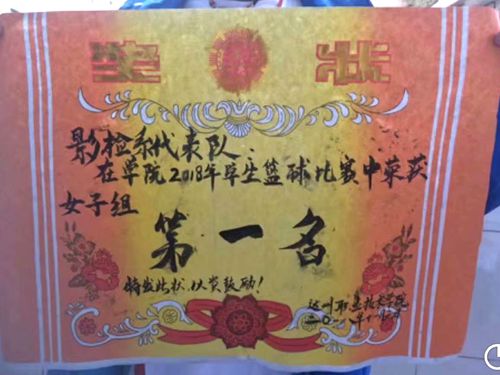 奖状
影检系代表队:
在学院2018年学生篮球比赛中荣获
女子组
第一名
特发此状,以资鼓励!
达州职业技术学院